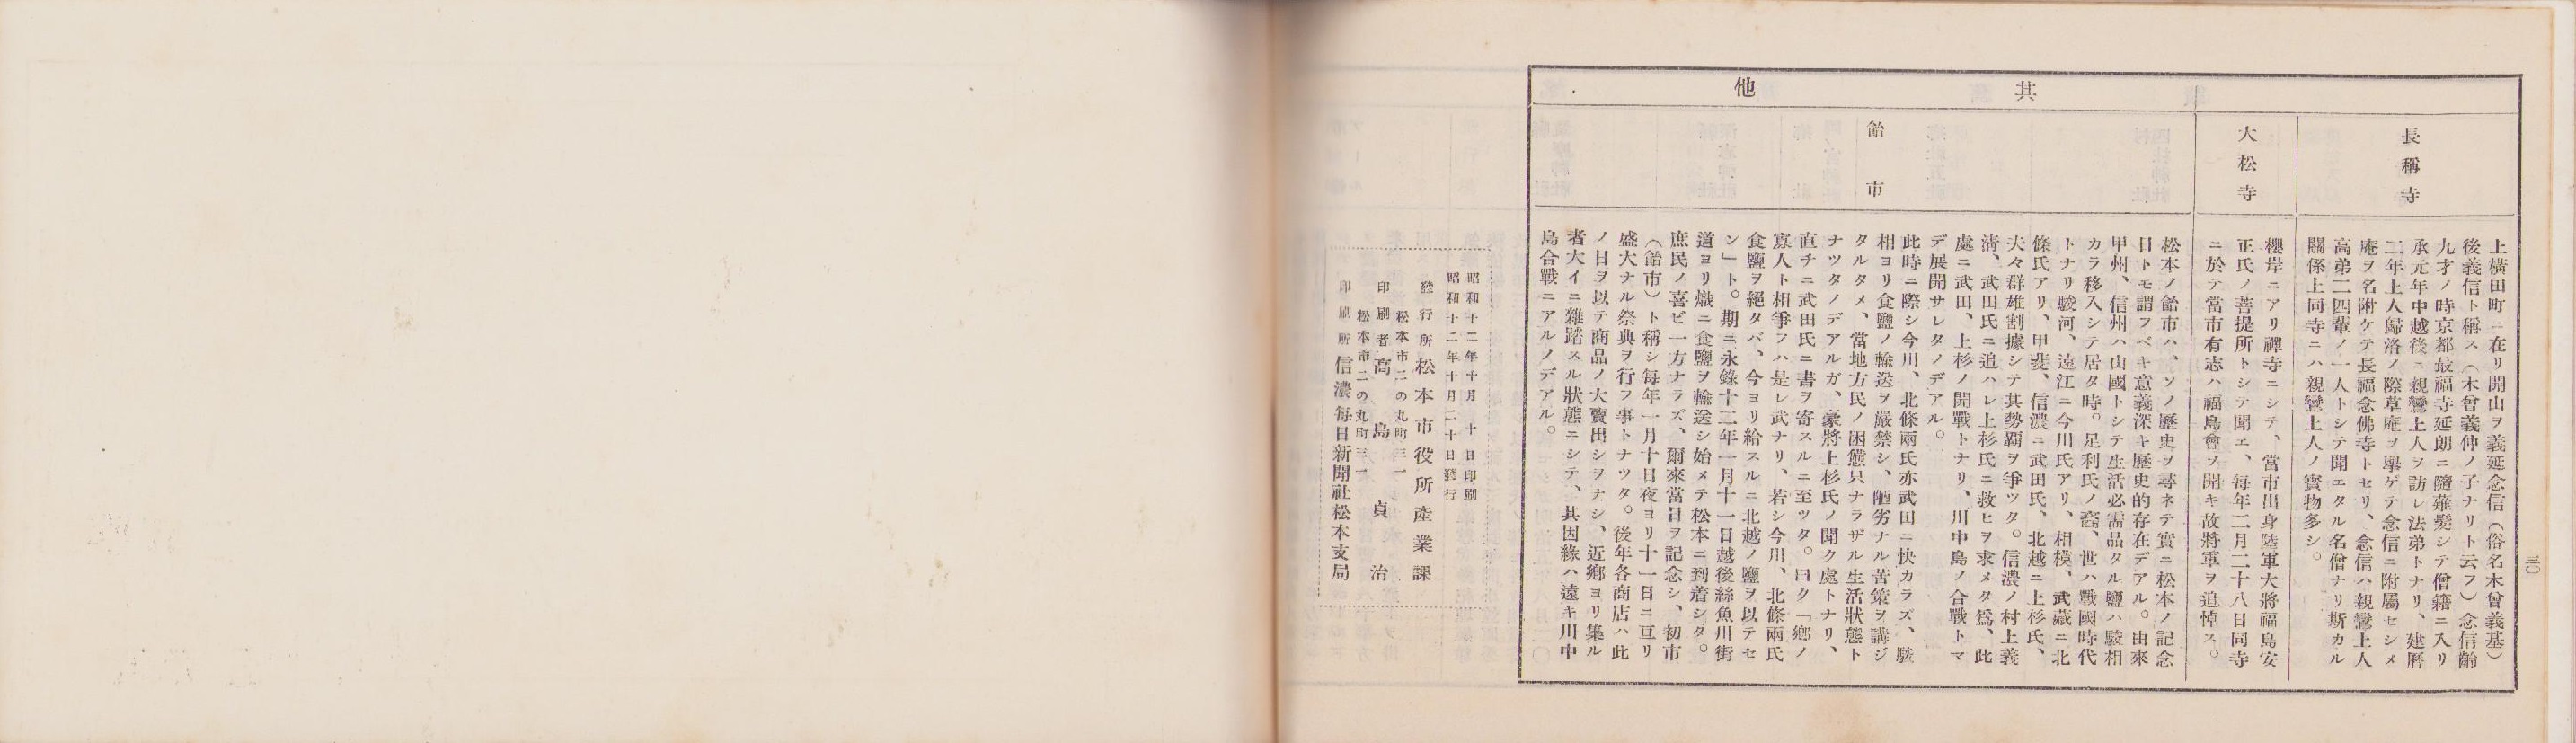 三〇
其他
長稱寺
上橫田町ニ在リ開山ヲ義延念信(俗名木曾義基)
後義信ト稱ス(木曾義仲ノ子ナリト云フ)念信齢
九才ノ時京都最福寺延朗ニ隨薙髮シテ僧籍ニ入リ
承元年中越後ニ親鸞上人ヲ訪レ法弟トナリ、建曆
二年上人歸洛ノ際草庵ヲ擧ゲテ念信ニ附屬セシメ
庵ヲ名附ケテ長福念佛寺トセリ、念信ハ親鸞上人
高弟二四輩ノ一人トシテ聞エタル名僧ナリ斯カル
關係上同寺ニハ親鸞上人ノ寳物多シ。
大松寺
櫻岸ニアリ禪寺ニシテ、當市出身陸軍大將福島安
正氏ノ菩提所トシテ聞エ、每年二月二十八日同寺
ニ於テ當市有志ハ福島會ヲ開キ故將軍ヲ追悼ス。
飴市
松本ノ飴市ハ、ソノ歷史ヲ尋ネテ實ニ松本ノ記念
日トモ謂フベキ意義深キ歷史的存在デアル。由來
甲州、信州ハ山國トシテ生活必需品タル鹽ハ駿相
カラ移入シテ居タ時。足利氏ノ裔、世ハ戰國時代
トナリ駿河、遠江ニ今川氏アリ、相模、武藏ニ北
條氏アリ、甲斐、信濃ニ武田氏、北越ニ上杉氏、
夫々群雄割據シテ其勢覇ヲ爭ツタ。信濃ノ村上義
淸、武田氏ニ追ハレ上杉氏ニ救ヒヲ求メタ爲、此
處ニ武田、上杉ノ開戰トナリ、川中島ノ合戰トマ
デ展開サレタノデアル。
此時ニ際シ今川、北條兩氏亦武田ニ快カラズ、駿
相ヨリ食鹽ノ輸送ヲ嚴禁シ、陋劣ナル苦策ヲ講ジ
タルタメ、當地方民ノ困憊只ナラザル生活狀態ト
ナツタノデアルガ、豪將上杉氏ノ聞ク處トナリ、
直チニ武田氏ニ書ヲ寄スルニ至ツタ。曰ク「鄕ノ
寡人ト相爭フハ是レ武ナリ、若シ今川、北條兩氏
食鹽ヲ絕タバ、今ヨリ給スルニ北越ノ鹽ヲ以テセ
ン」ト。期ニ永錄十二年一月十一日越後絲魚川街
道ヨリ熾ニ食鹽ヲ輸送シ始メテ松本ニ到着シタ。
庶民ノ喜ビ一方ナラズ、爾來當日ヲ記念シ、初市
(飴市)ト稱シ每年一月十日夜ヨリ十一日ニ亘リ
盛大ナル祭典ヲ行フ事トナツタ。後年各商店ハ此
ノ日ヲ以テ商品ノ大賣出シヲナシ、近鄕ヨリ集ル
者大イニ雜踏スル狀態ニシテ、其因緣ハ遠キ川中
島合戰ニアルノデアル。
昭和十二年十月　十日印刷
昭和十二年十月二十日發行
發行所　松本市役所產業課
松本市二の丸町三一
印刷者　高島貞治
松本市二の丸町三一
印刷所　信濃每日新聞社松本支局